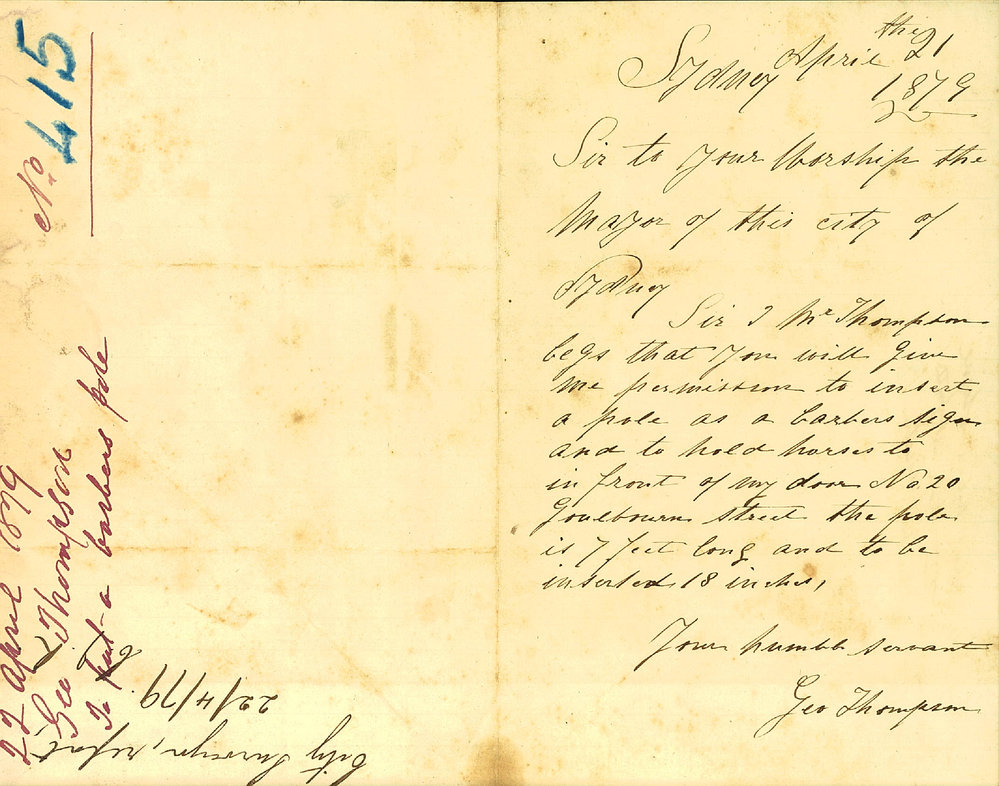 No. 415
22 April 1879
Geo Thompson
To Put a barbers pole
City Surveyor, report
22/4/79.
Sydney April the 21
1879
Sir to Your Worship the
Mayor of this city of
Sydney
Sir I Mr Thompson
begs that You will give
me permission to insert
a pole as a barbers sign
and to hold horses to
in front of my door No 20
Goulbourn street the pole
is 7 feet long and to be
inserted 18 inches,
Your humble servant
Geo Thompson